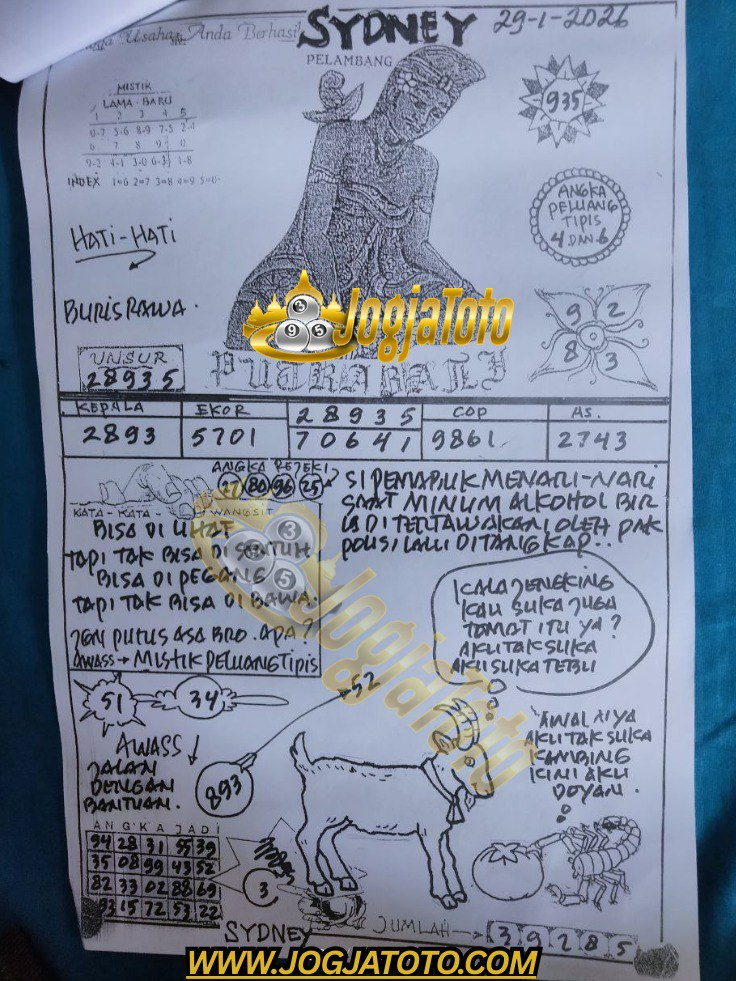 Semoga Usaha Anda Berhasil
SYDNEY
29-1-2026
PELAMBANG
MISTIK
LAMA - BARU
1 2 3 4 5
0-7 5-6 8-9 7-5 2-4
6 7 8 9 0
9-2 4-1 3-0 6-3 1-8
INDEX 1=6 2=7 3=8 4=9 5=0
935
ANGKA
PELUANG
TIPIS
4 DAN 6
HATI-HATI
BURISRAWA.
JogjaToto
9 2
8 3
UNSUR
28935
PUTRA BALI
KEPALA EKOR 28935 COP AS.
2893 5701 70641 9861 2743
ANGKA REJEKI
27 80 96 25
KATA - KATA - WANGSIT
BISA DI LIHAT
TAPI TAK BISA DI SENTUH
BISA DI PEGANG
TAPI TAK BISA DI BAWA.
JGN PUTUS ASA BRO. APA?
AWASS → MISTIK PELUANG TIPIS
SI PEMABUK MENARI-NARI
SAAT MINUM ALKOHOL BIR
DI TERTAWAKAN OLEH PAK
POLISI LALU DITANGKAP..
KALAJENGKING
KAU SUKA JUGA
TOMAT ITU YA?
AKU TAK SUKA
AKU SUKA TEBU
JogjaToto
51 34
52
AWASS
JALAN
DENGAN
BANTUAN.
893
AWALNYA
AKU TAK SUKA
KAMBING
KINI AKU
DOYAN.
ANGKA JADI
94 28 31 55 39
35 08 99 43 52
82 33 02 88 69
93 15 72 53 22
3
SYDNEY
JUMLAH
39285
WWW.JOGJATOTO.COM